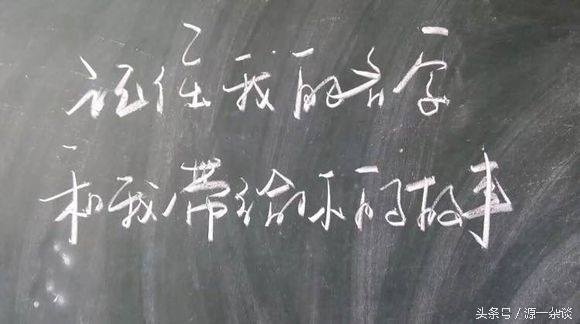 记住我的名字
和我带给你的故事
头条号／源一杂谈